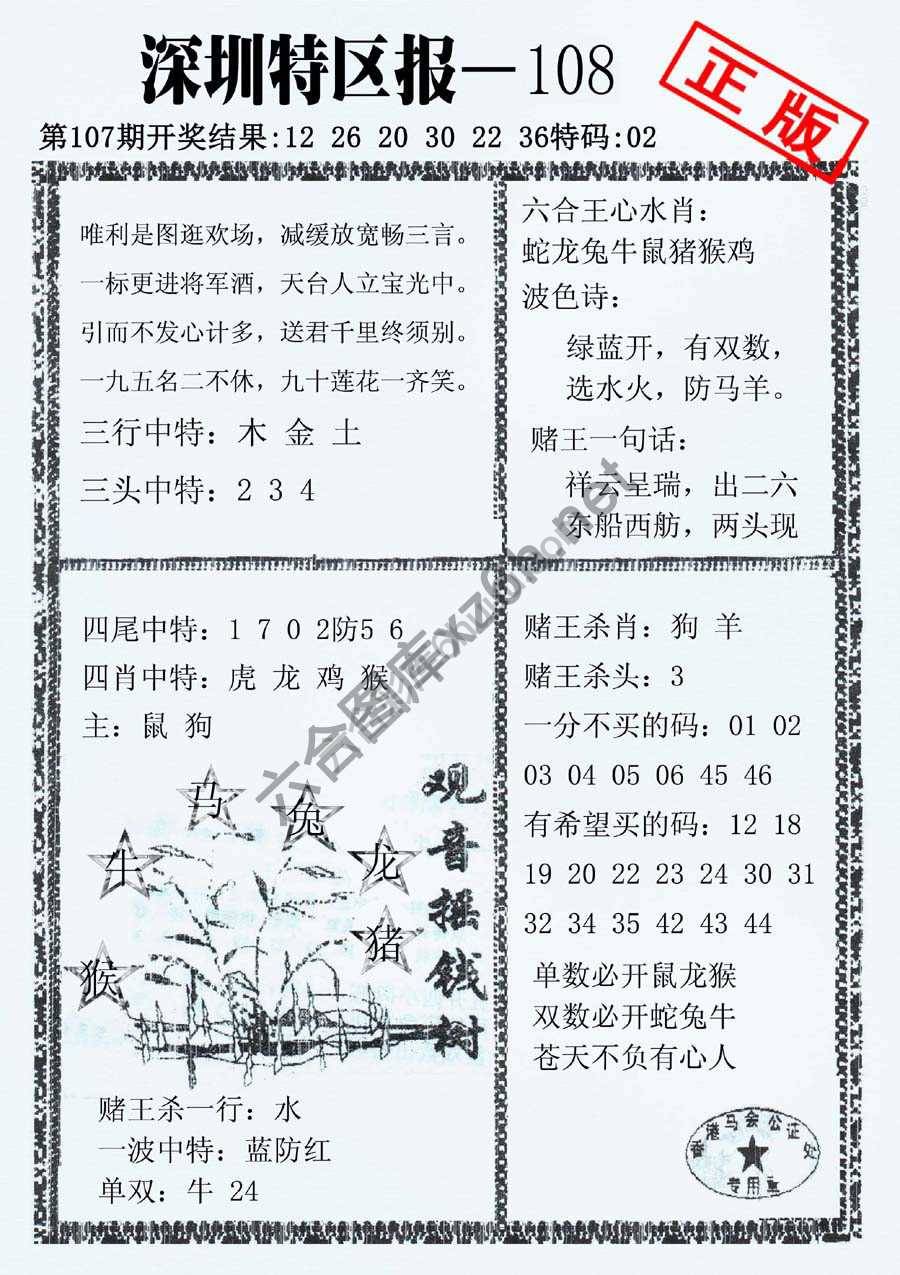 深圳特区报—108
正版
第107期开奖结果:12 26 20 30 22 36特码:02
唯利是图逛欢场，减缓放宽畅三言。
一标更进将军酒，天台人立宝光中。
引而不发心计多，送君千里终须别。
一九五名二不休，九十莲花一齐笑。
三行中特：木 金 土
三头中特：2 3 4
六合王心水肖：
蛇龙兔牛鼠猪猴鸡
波色诗：
绿蓝开，有双数，
选水火，防马羊。
赌王一句话：
祥云呈瑞，出二六
东船西舫，两头现
四尾中特：1 7 0 2防5 6
四肖中特：虎 龙 鸡 猴
主：鼠 狗
马
兔
牛
龙
猪
猴
观音摇钱树
赌王杀一行：水
一波中特：蓝防红
单双：牛 24
赌王杀肖：狗 羊
赌王杀头：3
一分不买的码：01 02
03 04 05 06 45 46
有希望买的码：12 18
19 20 22 23 24 30 31
32 34 35 42 43 44
单数必开鼠龙猴
双数必开蛇兔牛
苍天不负有心人
香港马会公证处
六合图库